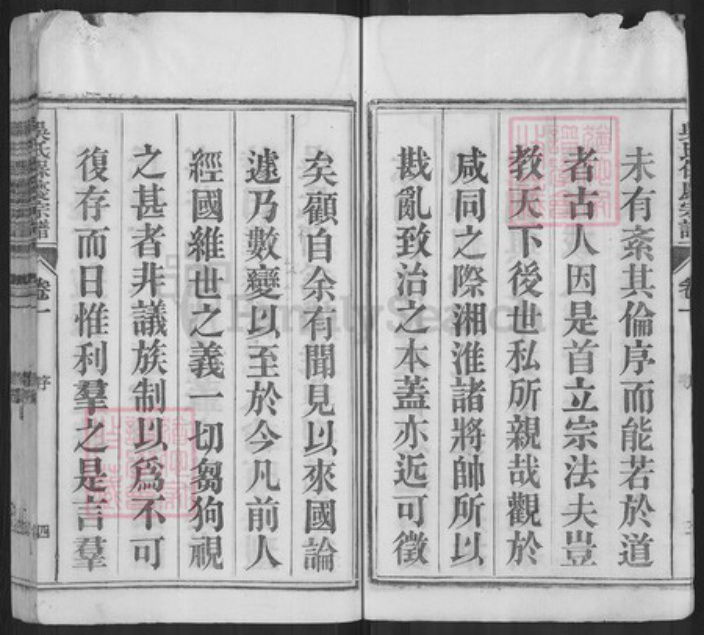 未有紊其倫序而能若於道
者古人因是首立宗法夫豈
教天下後世私所親哉觀於
咸同之際湘淮諸將帥所以
戡亂致治之本蓋亦近可徵
矣顧自余有聞見以來國論
遽乃數變以至於今凡前人
經國維世之義一切芻狗視
之甚者非議族制以為不可
復存而日惟利羣之是言羣
宗譜
卷一
序
四
FamilySearch